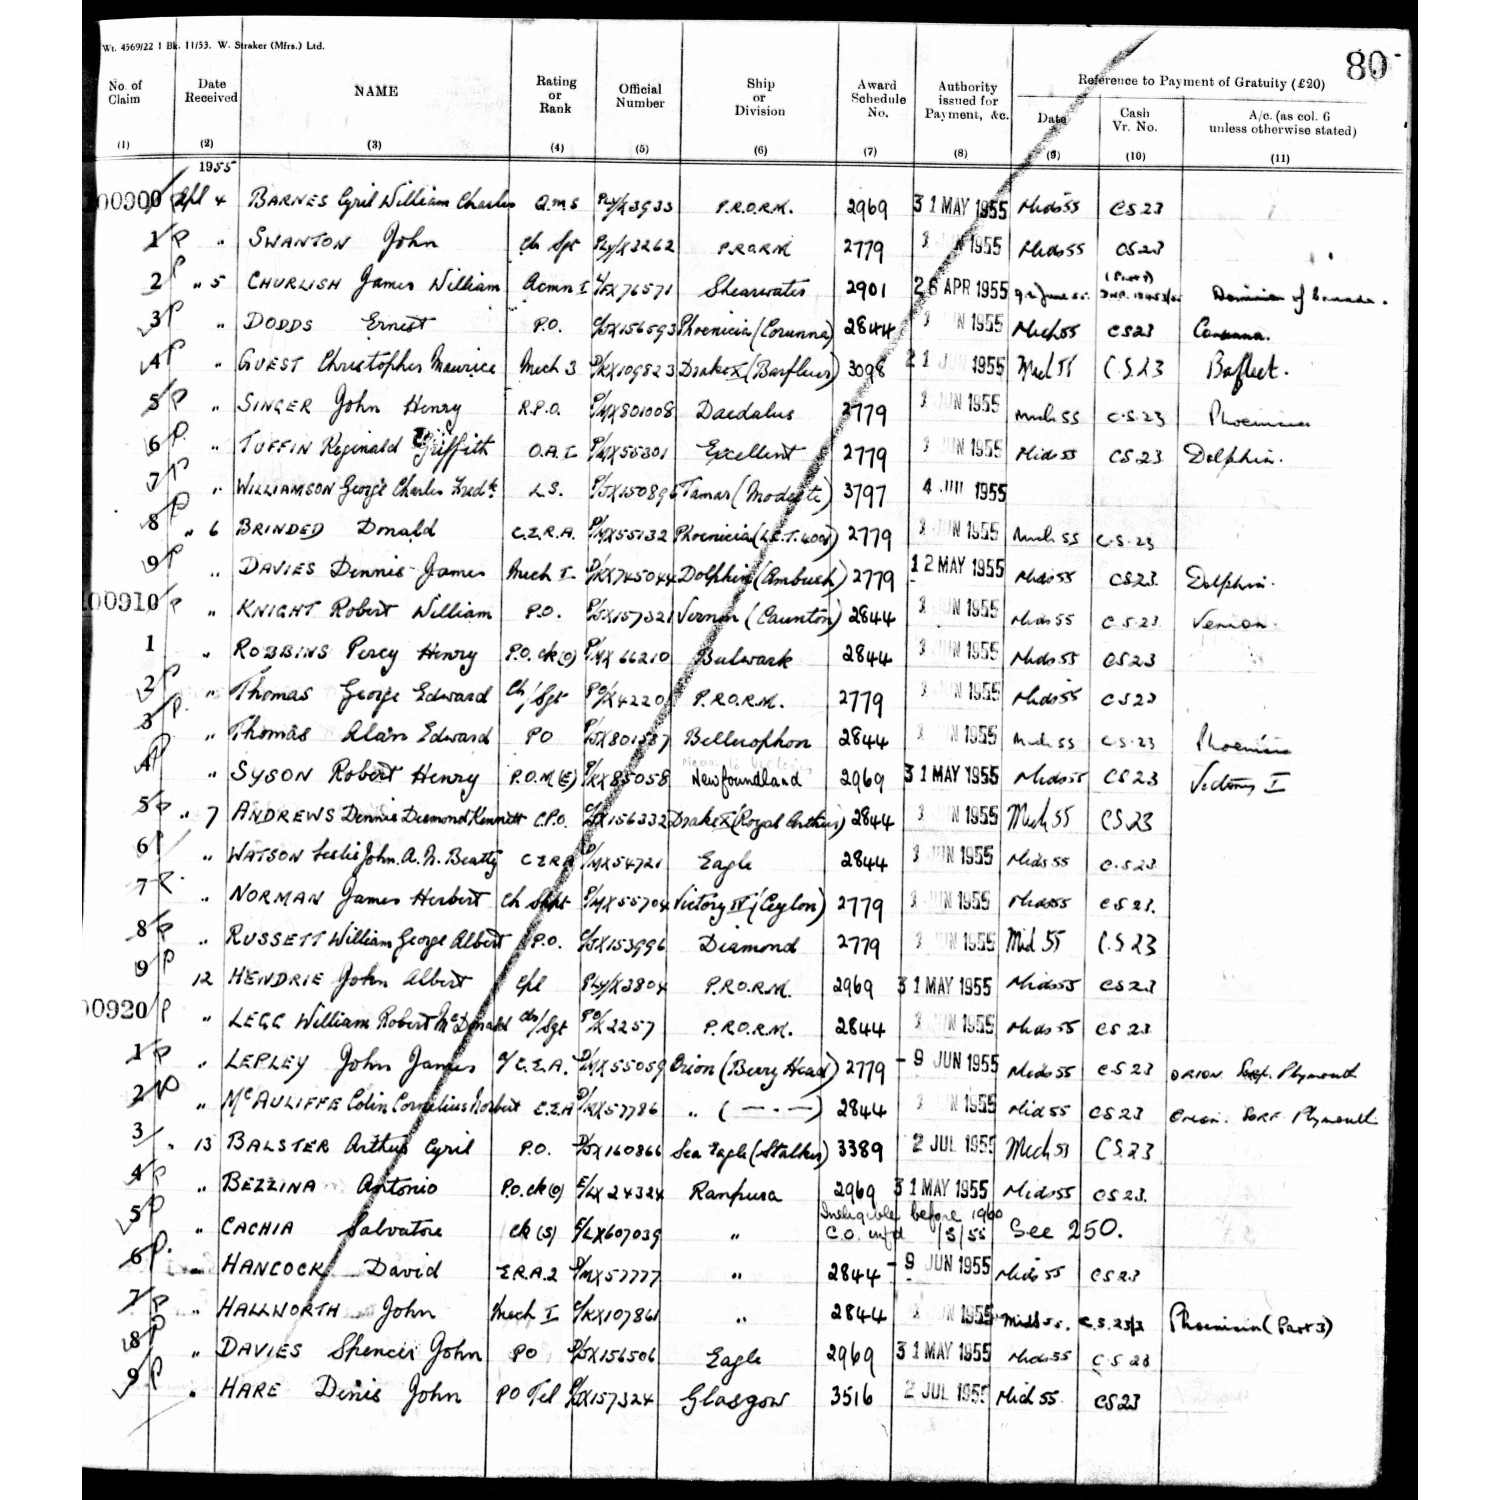 Wt. 4569/22 1 Bk. 11/53. W. Straker (Mfrs.) Ltd.
80
No. of Claim Date Received NAME Rating or Rank Official Number Ship or Division Award Schedule No. Authority issued for Payment, &c. Reference to Payment of Gratuity (£20)
Date Cash Vr. No. A/c. (as col. 6 unless otherwise stated)
(1) (2) (3) (4) (5) (6) (7) (8) (9) (10) (11)
1955
00900 Apl 4 BARNES Cyril William Charles Q.M.S Ply/X3933 P.R.O.R.M. 2969 31 MAY 1955 Mids 55 CS 23
1 P " SWANTON John Ch Sgt Ply/X3262 P.R.O.R.M 2779 JUN 1955 Mids 55 CS23
2 P " 5 CHURLISH James William Acmn I L/FX76571 Shearwater 2901 26 APR 1955 Dominion of Canada.
3 P " DODDS Ernest P.O. C/JX156593 Phoenicia (Corunna) 2844 JUN 1955 Mech 55 CS23 Corunna.
4 P " GUEST Christopher Maurice Mech 3 P/KX109823 Drake X (Barfleur) 3098 21 JUN 1955 Med 55 C.S.23 Bafleet.
5 P " SINGER John Henry R.P.O. P/MX801008 Daedalus 2779 JUN 1955 Mids 55 C.S.23 Phoenicia
6 P " TUFFIN Reginald Griffith O.A.I P/MX55301 Excellent 2779 JUN 1955 Mids 55 CS.23 Dolphin.
7 P " WILLIAMSON George Charles Fredk L.S. P/JX150896 Tamar (Modeste) 3797 4 JUL 1955
8 P " 6 BRINDED Donald C.E.R.A. P/MX55132 Phoenicia (L.C.T. 4001) 2779 JUN 1955 Mids 55 C.S.23
9 P " DAVIES Dennis James Mech I P/KX745044 Dolphin (Ambush) 2779 12 MAY 1955 Mids 55 CS23. Dolphin.
00910 P " KNIGHT Robert William P.O. P/JX157321 Vernon (Caunton) 2844 JUN 1955 Mids 55 C.S.23 Vernon.
1 " ROBBINS Percy Henry P.O. Ck(O) P/MX66210 Bulwark 2844 JUN 1955 Mids 55 CS23
2 P " Thomas George Edward Ch/Sgt PO/X4220 P.R.O.R.M. 2779 JUN 1955 Mids 55 CS23
3 P. " Thomas Alan Edward PO P/JX801587 Bellerophon 2844 JUN 1955 Mids 55 C.S.23 Phoenicia
4 P " SYSON Robert Henry P.O.M(E) P/KX85058 Newfoundland 2969 31 MAY 1955 Mids 55 CS23 Victory I
5 P " 7 ANDREWS Dennis Desmond Kenneth C.P.O. C/JX156332 Drake X (Royal Arthur) 2844 JUN 1955 Mech 55 CS.23
6 P " WATSON Leslie John. A. N. Beatty C E R A P/MX54721 Eagle 2844 JUN 1955 Mids 55 C.S23
7 P. " NORMAN James Herbert Ch Shpt P/MX55704 Victory IV (Ceylon) 2779 JUN 1955 Mids 55 CS23.
8 P " RUSSETT William George Albert P.O. C/JX153996 Diamond 2779 JUN 1955 Mid 55 C.S 23
9 P 12 HENDRIE John Albert Cpl Ply/X3804 P.R.O.R.M. 2969 31 MAY 1955 Mids 55 CS23
00920 P " LEGG William Robert McDonald Ch/Sgt PO/X2257 P.R.O.R.M. 2844 JUN 1955 Mids 55 CS 23
1 P " LEPLEY John James A/C.E.A. P/MX55059 Orion (Berry Head) 2779 -9 JUN 1955 Mids 55 CS 23 ORION. Plymouth
2 P " McAULIFFE Colin Cornelius Norbert E.E.A P/MX57786 " ( — " — ) 2844 JUN 1955 Mid 55 CS23 Orion. Plymouth
3 " 13 BALSTER Arthur Cyril P.O. P/JX160866 Sea Eagle (Stalker) 3389 2 JUL 1955 Mech 55 C.S.23
4 P " BEZZINA Antonio P.O.Ck(O) E/LX24324 Ranpura 2969 31 MAY 1955 Mids 55 CS23.
5 P " CACHIA Salvatore Ck (S) E/LX607039 " Ineligible before 1960 C.O. infd /5/55 See 250.
6 P. " HANCOCK David E.R.A.2 P/MX57777 " 2844 -9 JUN 1955 Mids 55 CS23
7 P " HALLWORTH John Mech I P/KX107861 " 2844 JUN 1955 Mids 55. C.S.23/2 Phoenicia (Part 3)
8 P " DAVIES Spencer John PO P/JX156506 Eagle 2969 31 MAY 1955 Mids 55 C.S 23
9 P " HARE Denis John PO Tel P/JX157324 Glasgow 3516 2 JUL 1955 Mid 55 CS23